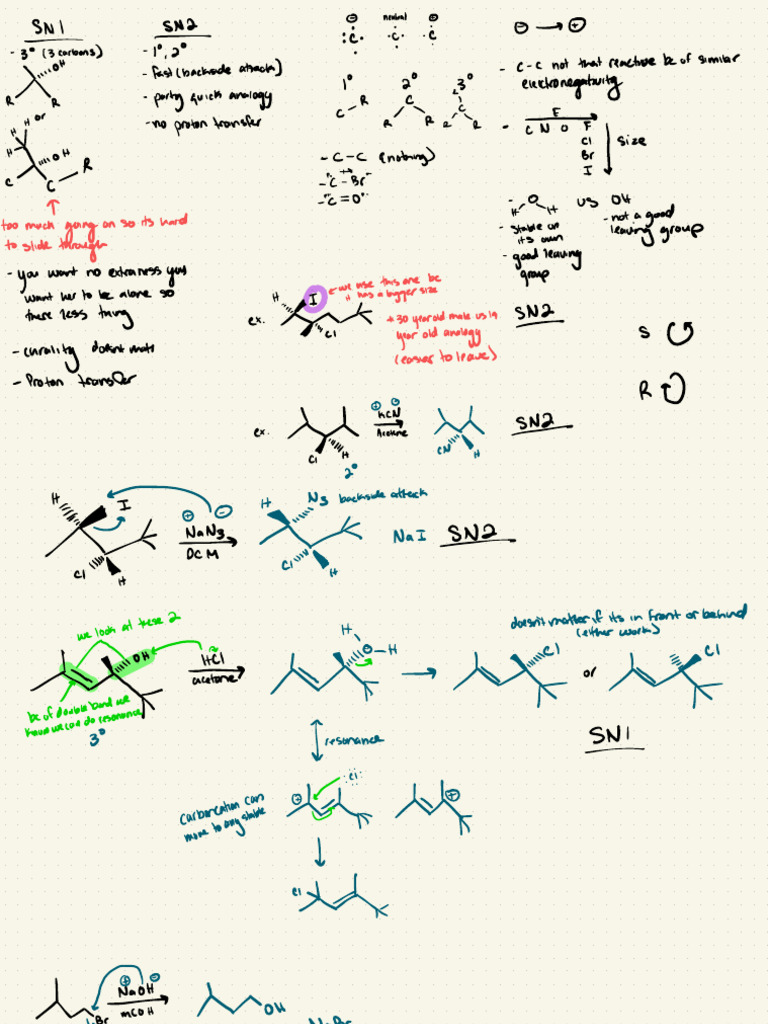 SN1
- 3° (3 carbons)
OH
R
R
or
H
H
H
OH
C
C
R
too much going on so its hard
to slide through
- you want no extraness you
want her to be alone so
there less thing
- chirality doesnt mate
- Proton transfer
SN2
- 1°, 2°
- fast (backside attack)
- party quick analogy
- no proton transfer
neutral
:C· ·C· C
1° 2° 3°
C-R
C
R R
C
R R R
- C-C (nothing)
- C-Br
- C=O
⊖ → ⊕
- C-C not that reactive bc of similar
elektronegativity
- E
C N O F
Cl
Br
I
size
- H O H vs OH
- stable on
its own
- good leaving
group
- not a good
leaving group
ex.
H
I
Cl
← we use this one bc
it has a bigger size
+ 30 year old male vs 19
year old analogy
(easier to leave)
SN2
S
R
ex.
Cl
H
⊕ ⊖
KCN
Acetone
CN
H
SN2
2°
H
I
Cl
H
⊕ ⊖
NaN3
DCM
H
N3
backside attack
Cl
H
NaI
SN2
we look at these 2
OH
bc of double bond we
know we can do resonance
3°
HCl
acetone
H
O-H
→
doesn't matter if its in front or behind
(either work)
Cl
or
Cl
SN1
resonance
carbocation can
move to any stable
⊕
:Cl:
⊕
Cl
Br
⊕ ⊖
NaOH
mCOH
OH
NaBr